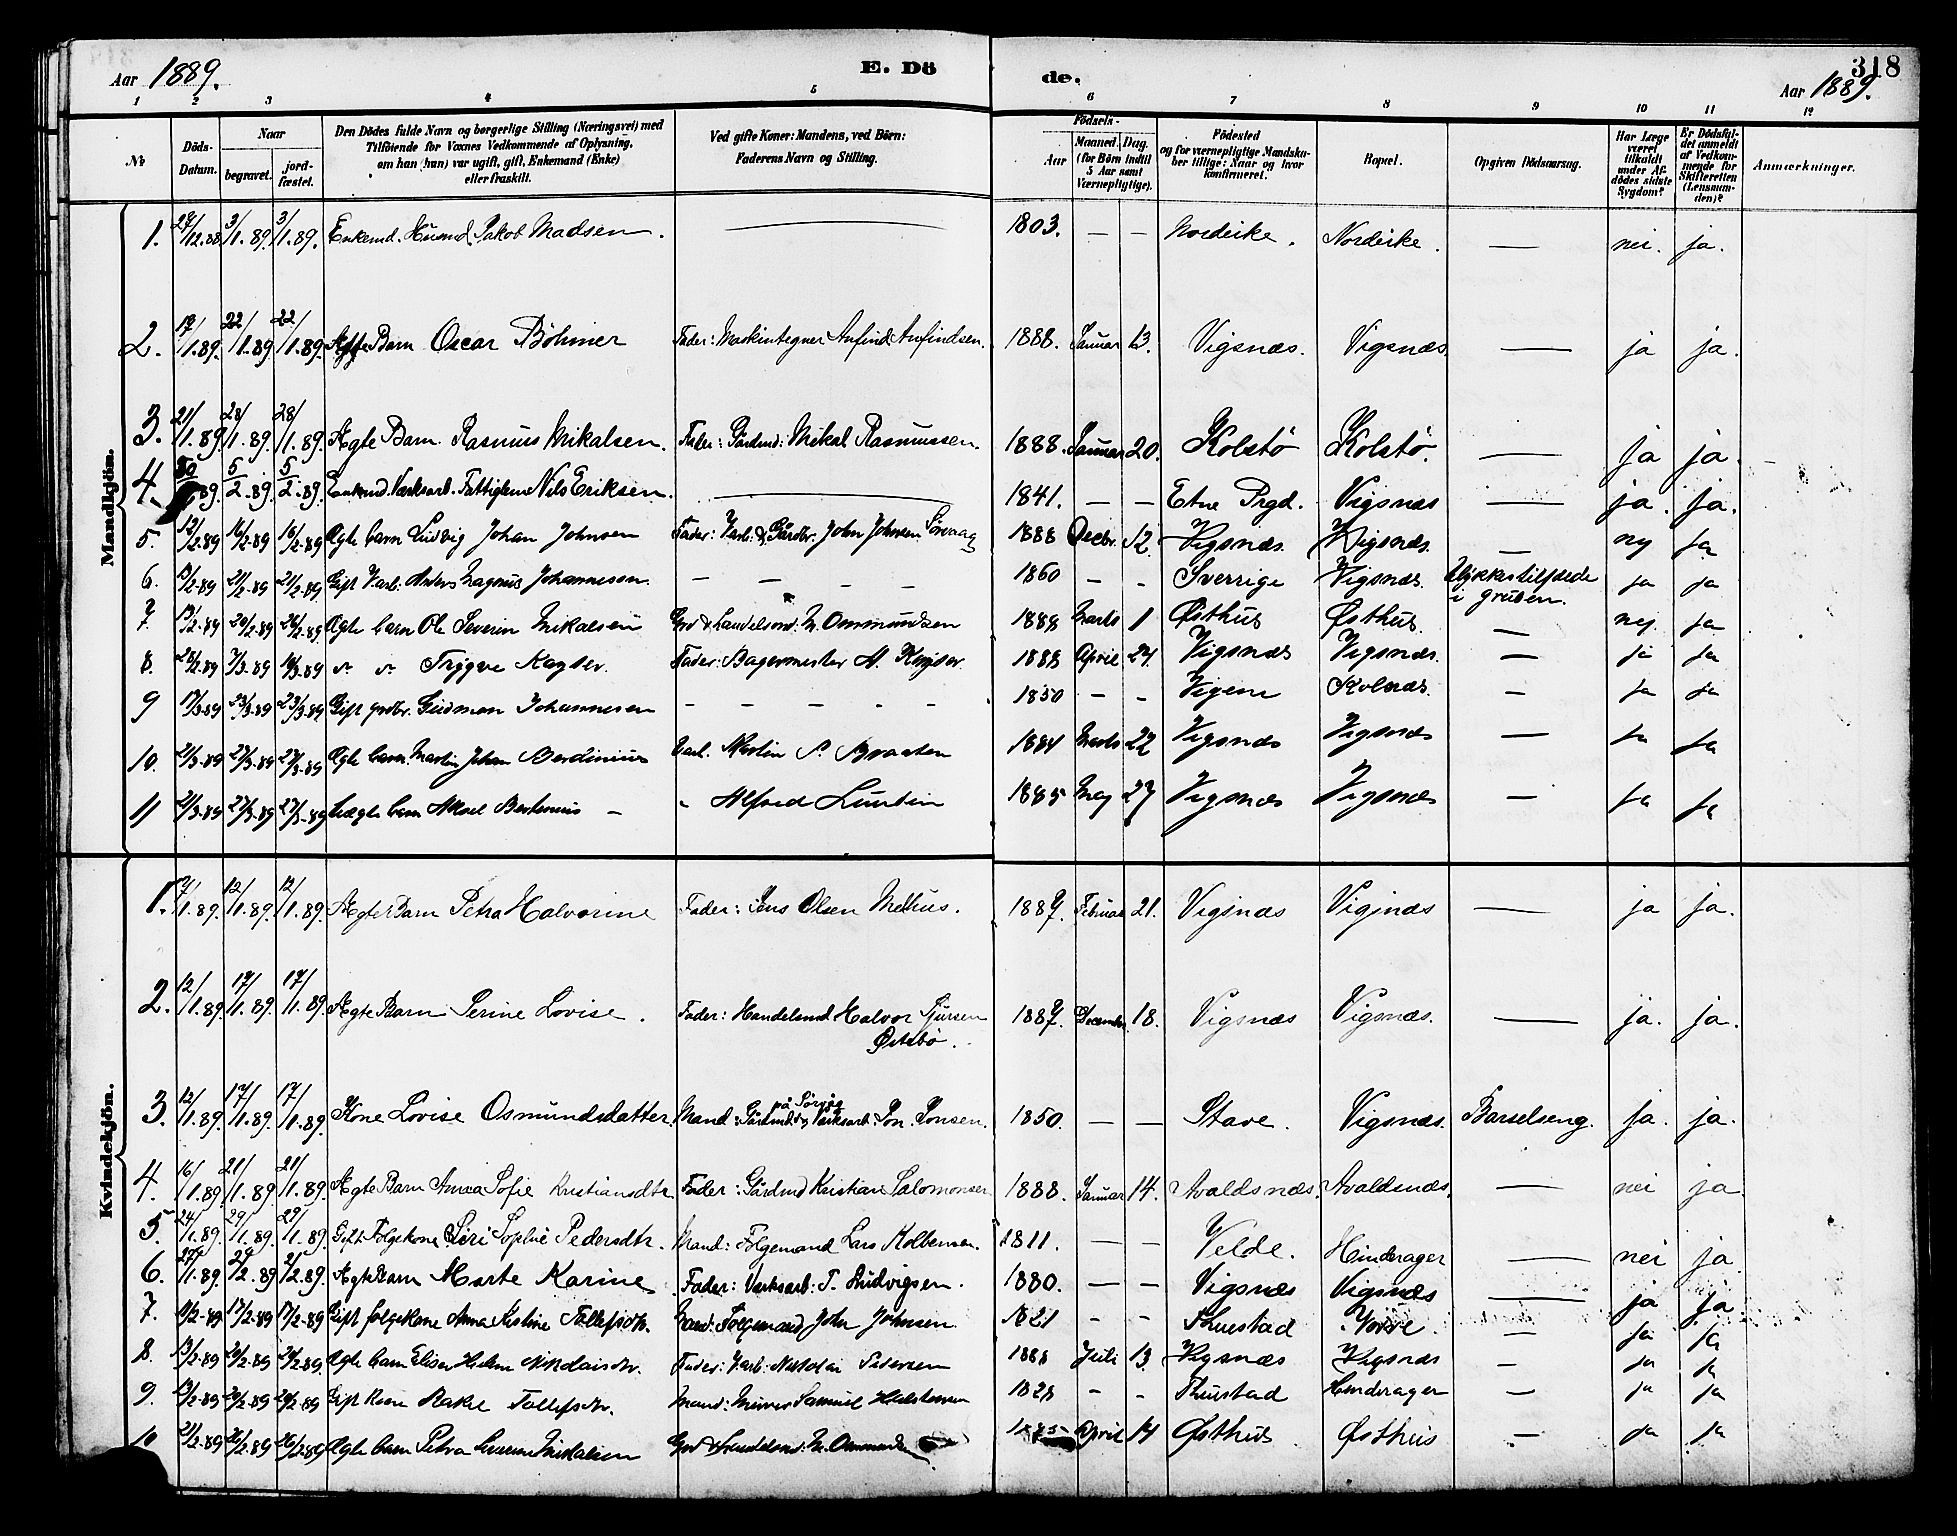 Aar 1889.
E. Dö
de.
318
Aar 1889.
1 2 3 4 5 6 7 8 9 10 11 12
No
Döds-Datum.
Naar
begravet.
jord-fæstet.
Den Dödes fulde Navn og borgerlige Stilling (Næringsvei) med
Tilföiende for Voxnes Vedkommende af Oplysning,
om han (hun) var ugift, gift, Enkemand (Enke)
eller fraskilt.
Ved gifte Koner: Mandens, ved Börn:
Faderens Navn og Stilling.
Födsels-
Aar
Maaned. Dag.
(for Börn indtil
5 Aar samt
Værnepligtige).
Födested
og for værnepligtige Mandska-
ber tillige: Naar og hvor
konfirmeret.
Bopæl.
Opgiven Dödsaarsag.
Har Læge
været
tilkaldt
under Af-
dödes sidste
Sygdom?
Er Dödsfal-
det anmeldt
af Vedkom-
mende for
Skifteretten
(Lensman-
den)?
Anmærkninger.
Mandkjön.
1. 29/12.88 3/1.89. 3/1.89. Enkemd. Husmd. Jakob Madsen. — 1803. — — Nordeike. Nordeike. — nei. ja.
2. 19/1.89. 22/1.89 22/1.89. Ægte Barn Oscar Böhmer Fader: Maskintegner Anfind Anfindsen. 1888. Januar 13. Vigsnæs. Vigsnæs. — ja ja.
3. 21/1.89 28/1.89. 28/1.89. Ægte Barn Rasmus Mikalsen. Fader: Gårdmd: Mikal Rasmussen. 1888. Januar 20. Kolstö Kolstö. — ja ja.
4. 30/1 89. 5/2.89. 5/2.89. Enkemd. Værksarb. Fattiglem Nils Eriksen. — 1841. — — Etne Prgd. Vigsnæs — ja. ja.
5. 12/2.89 16/2.89 16/2.89 Ægte barn Ludvig Johan Johnsen Fader: Varb. & Gårdbr. John Johnsen Sörvaag 1888 Decbr. 12. Vigsnæs. Vigsnæs. — nej ja
6. 15/2.89 21/2.89 21/2.89 Gift Varb. Anders Magnus Johannesen. — — — — 1860 — — Sverrige Vigsnæs. Ulykkestilfælde i gruben. ja ja
7. 19/2.89 26/2.89 26/2.89. Ægte barn Ole Severin Mikalsen Grd & Landelsmd. M. Ommundsen 1888 Marts 1 Østhus Østhus. — nej. ja
8. 28/2.89 7/3.89 14/3.89 " " Trygve Kayser. Fader: Bagermester A. Kayser. 1888 April 24. Vigsnæs Vigsnæs. — ja ja
9 17/3.89 23/3.89 23/3.89 Gift grdbr. Gudmon Johannesen — — — — — 1850 — — Vigene Kolnæs. — ja ja
10. 21/3.89 27/3.89 27/3.89 Ægte barn Martin Johan Berdinius Varb. Martin P. Braaten 1884 Marts 22 Vigsnæs Vigsnæs — ja ja
11 21/3.89 27/3.89 27/3.89 Uægte barn Aksel Bertinius — " Alfred Luntin 1885 Maj 27 Vigsnæs Vigsnæs — ja ja
Kvindekjön.
1. 7/1.89. 12/1.89. 12/1.89. Ægte Barn Petra Halvorine Fader: Jens Olsen Melhus. 1887. Februar 21. Vigsnæs Vigsnæs — ja ja.
2. 12/1.89. 17/1.89. 17/1.89. Ægte Barn Serine Lovise. Fader: Handelsmd Halvor Sjursen Østebö. 1887. December 18. Vigsnæs Vigsnæs. — ja. ja.
3. 12/1.89. 17/1.89. 17/1.89. Kone Lovise Osmundsdatter. Mand: Gårdmd. på Sörvåg & Værksarb. Jon Jonsen. 1850. — — Stave. Vigsnæs. Barselseng. ja. ja.
4. 16/1.89. 21/1.89. 21/1.89. Ægte Barn Anna Sofie Kristiansdtr. Fader: Gårdmd Kristian Salomonsen 1888. Januar 14. Avaldsnæs. Avaldsnæs. — nei ja.
5. 24/1.89. 29/1.89. 29/1.89. Gift Folgekone Siri Sophie Pedersdtr. Mand: Folgemand Lars Kolbensen. 1811. — — Velde. Hinderager — nei ja.
6. 27/1.89. 2/2.89. 2/2.89. Ægte Barn Marte Karine Fader: Værksarb: T. Ludvigsen. 1880. — — Vigsnæs Vigsnæs — ja ja.
7. 11/2.89 17/2.89 17/2.89 Gift folgekone Anna Kistine Tollefsdtr. Mand: Folgemand John Johnsen 1821 — — Thuestad — ja ja
8. 13/2.89 20/2.89 20/2.89. Ægte barn Elisa Helene Nikolaisdtr. Fader: Varb. Nikolai Pedersen 1888 Juli 13. Vigsnæs Vigsnæs — ja ja
9. 15/2.89 20/2.89 20/2.89 Gift kone Rakel Tollefsdtr. Mand: Murer Samuel 1828 — — Thuestad Hinderager — ja ja
10 21/2.89 26/2.89 26/2.89 Ægte barn Petra Mikalsen Grd & Landelsmd. M. April 14 Østhus Østhus — ja ja